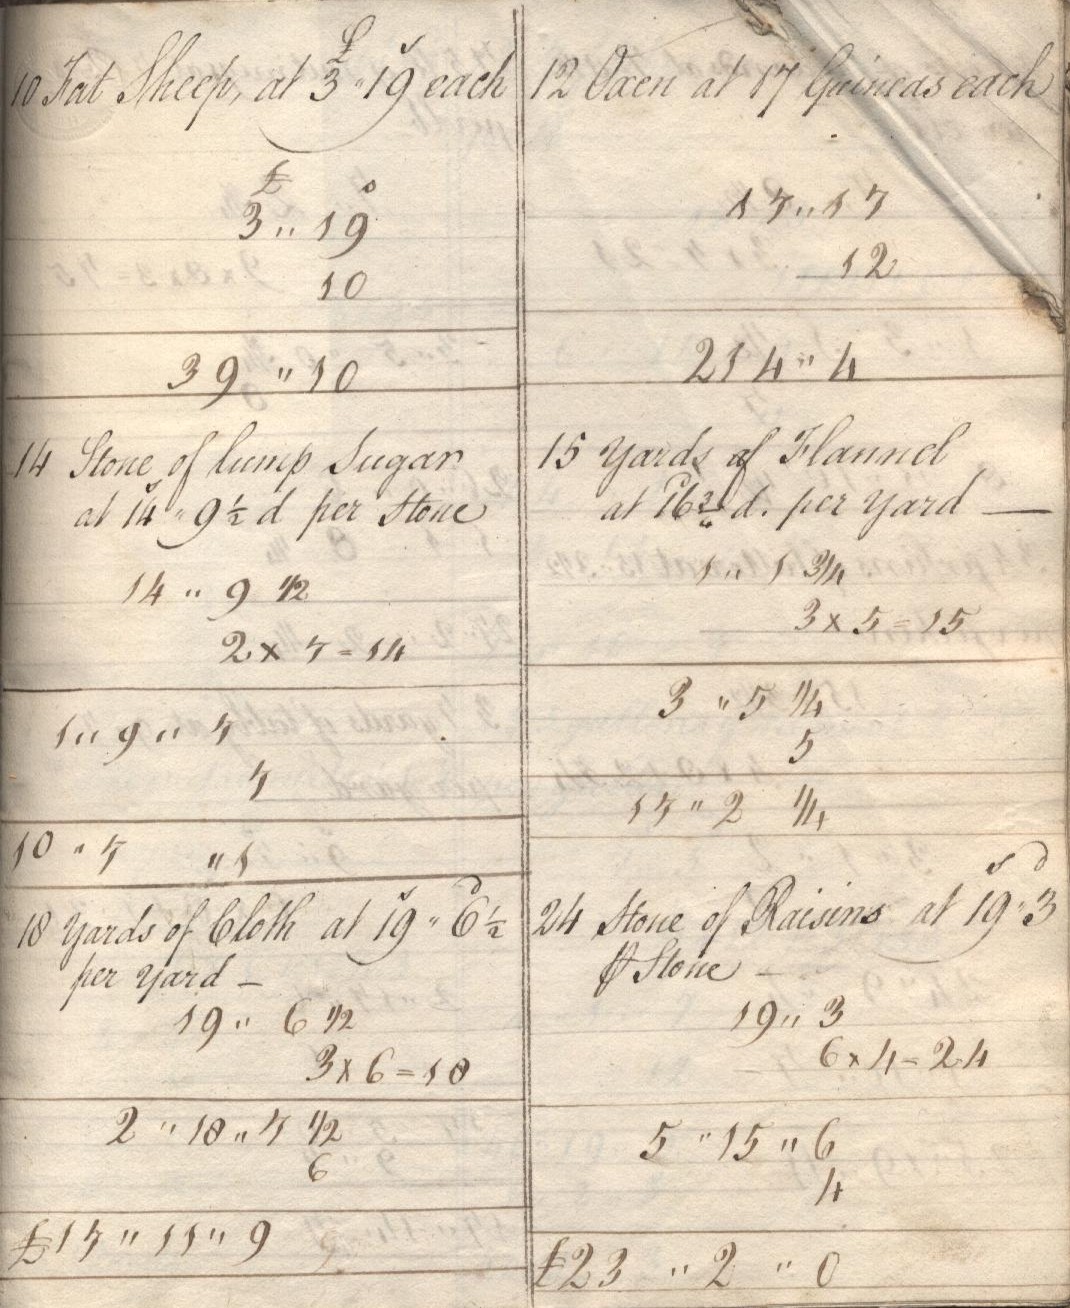 £ s
10 Fat Sheep, at 3 " 19 each
£ s
3 " 19
10
39 " 10
14 Stone of lump Sugar
s
at 14 " 9 1/2 d per Stone
14 " 9 1/2
2 x 7 = 14
1 " 9 " 7
7
10 " 7 " 1
s D
18 Yards of Cloth at 19 " 6 1/2
per Yard -
19 " 6 1/2
3 x 6 = 18
2 " 18 " 7 1/2
6
£17 " 11 " 9
12 Oxen at 17 Guineas each
17 " 17
12
214 " 4
15 Yards of Flannel
at d. per Yard —
1 " 1 3/4
3 x 5 = 15
3 " 5 1/4
5
17 " 2 1/4
s D
24 Stone of Raisins at 19 " 3
⅌ Stone -
19 " 3
6 x 4 = 24
5 " 15 " 6
4
£23 " 2 " 0